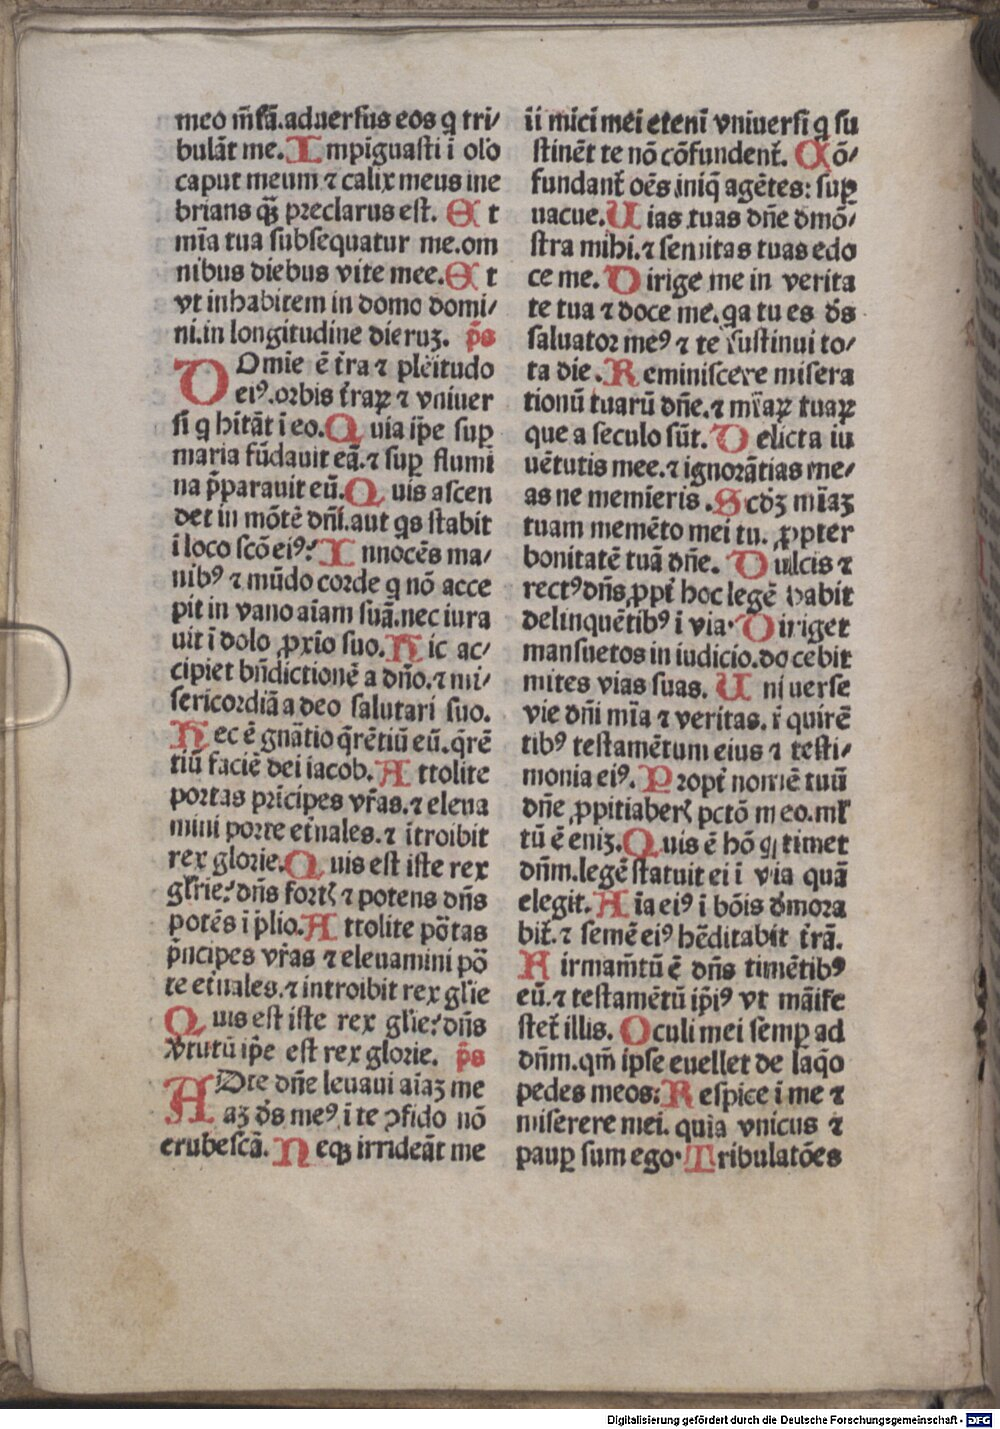 meo m̃sã.aduersus eos q tri/
bulãt me. Impĩguasti ĩ olo
caput meum ⁊ calix meus ine
brians qꝫ̃ preclarus est. Et
mĩa tua subsequatur me.om
nibus diebus vite mee. Et
vt inhabitem in domo domi/
ni.in longitudine dieruꝫ. p̃s
DOmie ẽ t̃ra ⁊ plẽitudo
eiꝰ.orbis t̃raꝝ ⁊ vniuer
si q hĩtãt ĩ eo. Quia ip̃e suꝑ
maria fũdauit eã.⁊ suꝑ flumi
na p̃parauit eũ. Quis ascen
det in mõtẽ dñi.aut qs stabit
ĩ loco scõ eiꝰ? Innocẽs ma/
nibꝰ ⁊ mũdo corde q nõ acce
pit in vano aĩam suã.nec iura
uit ĩ dolo ꝓxĩo suo. Hic ac/
cipiet bñdictionẽ a dño.⁊ mi/
sericordiã a deo salutari suo.
Hec ẽ gnãtio q̃rẽtiũ eũ.q̃rẽ
tiũ faciẽ dei iacob. Attolite
portas prĩcipes vr̃as.⁊ eleua
mini porte et̃nales.⁊ ĩtroibit
rex glorie. Quis est iste rex
gl̃rie? dñs fortꝭ ⁊ potens dñs
potẽs ĩ p̃lio. Attolite põtas
p̃ncipes vr̃as ⁊ eleuamini põ
te et̃nales.⁊ introibit rex gl̃ie
Quis est iste rex gl̃ie? dñs
v̓tutũ ip̃e est rex glorie. p̃s
ADte dñe leuaui aĩaꝫ me
aꝫ ds̃ meꝰ ĩ te ↄfido nõ
erubescã. Neqꝫ irrideãt me
ii mici mei etenĩ vniuersi q su
stinẽt te nõ cõfundent̃. Cõ/
fundant̃ oẽs iniq̃ agẽtes: suꝑ
uacue. Uias tuas dñe dmõ/
stra mihi.⁊ semitas tuas edo
ce me. Dirige me in verita
te tua ⁊ doce me.qa tu es ds̃
saluator meꝰ ⁊ te sustinui to/
ta die. Reminiscere misera
tionũ tuarũ dñe.⁊ mĩaꝝ tuaꝝ
que a seculo sũt. Delicta iu
uẽtutis mee.⁊ ignorãtias me/
as ne memĩeris. Scdꝫ mĩaꝫ
tuam memẽto mei tu. ꝓpter
bonitatẽ tuã dñe. Dulcis ⁊
rectꝰ dñs ꝓpt̃ hoc legẽ dabit
delinquẽtibꝰ ĩ via. Diriget
mansuetos in iudicio.docebit
mites vias suas. Uniuerse
vie dñi mĩa ⁊ veritas.r̃quirẽ
tibꝰ testamẽtum eius ⁊ testi/
monia eiꝰ. Propt̃ nomẽ tuũ
dñe ꝓpitiaberꝭ pctõ meo.ml̃
tũ ẽ eniꝫ. Quis ẽ hõ qi timet
dñm.legẽ statuit ei ĩ via quã
elegit. Aĩa eiꝰ ĩ bõis dmora
bit̃.⁊ semẽ eiꝰ hẽditabit t̃rã.
Firmam̃tũ ẽ dñs timẽtibꝰ
eũ.⁊ testamẽtũ ip̃iꝰ vt mãife
stet̃ illis. Oculi mei semꝑ ad
dñm.qm̃ ipse euellet de laq̃o
pedes meos: Respice ĩ me ⁊
miserere mei. quia vnicus ⁊
pauꝑ sum ego. Tribulatões
Digitalisierung gefördert durch die Deutsche Forschungsgemeinschaft - DFG